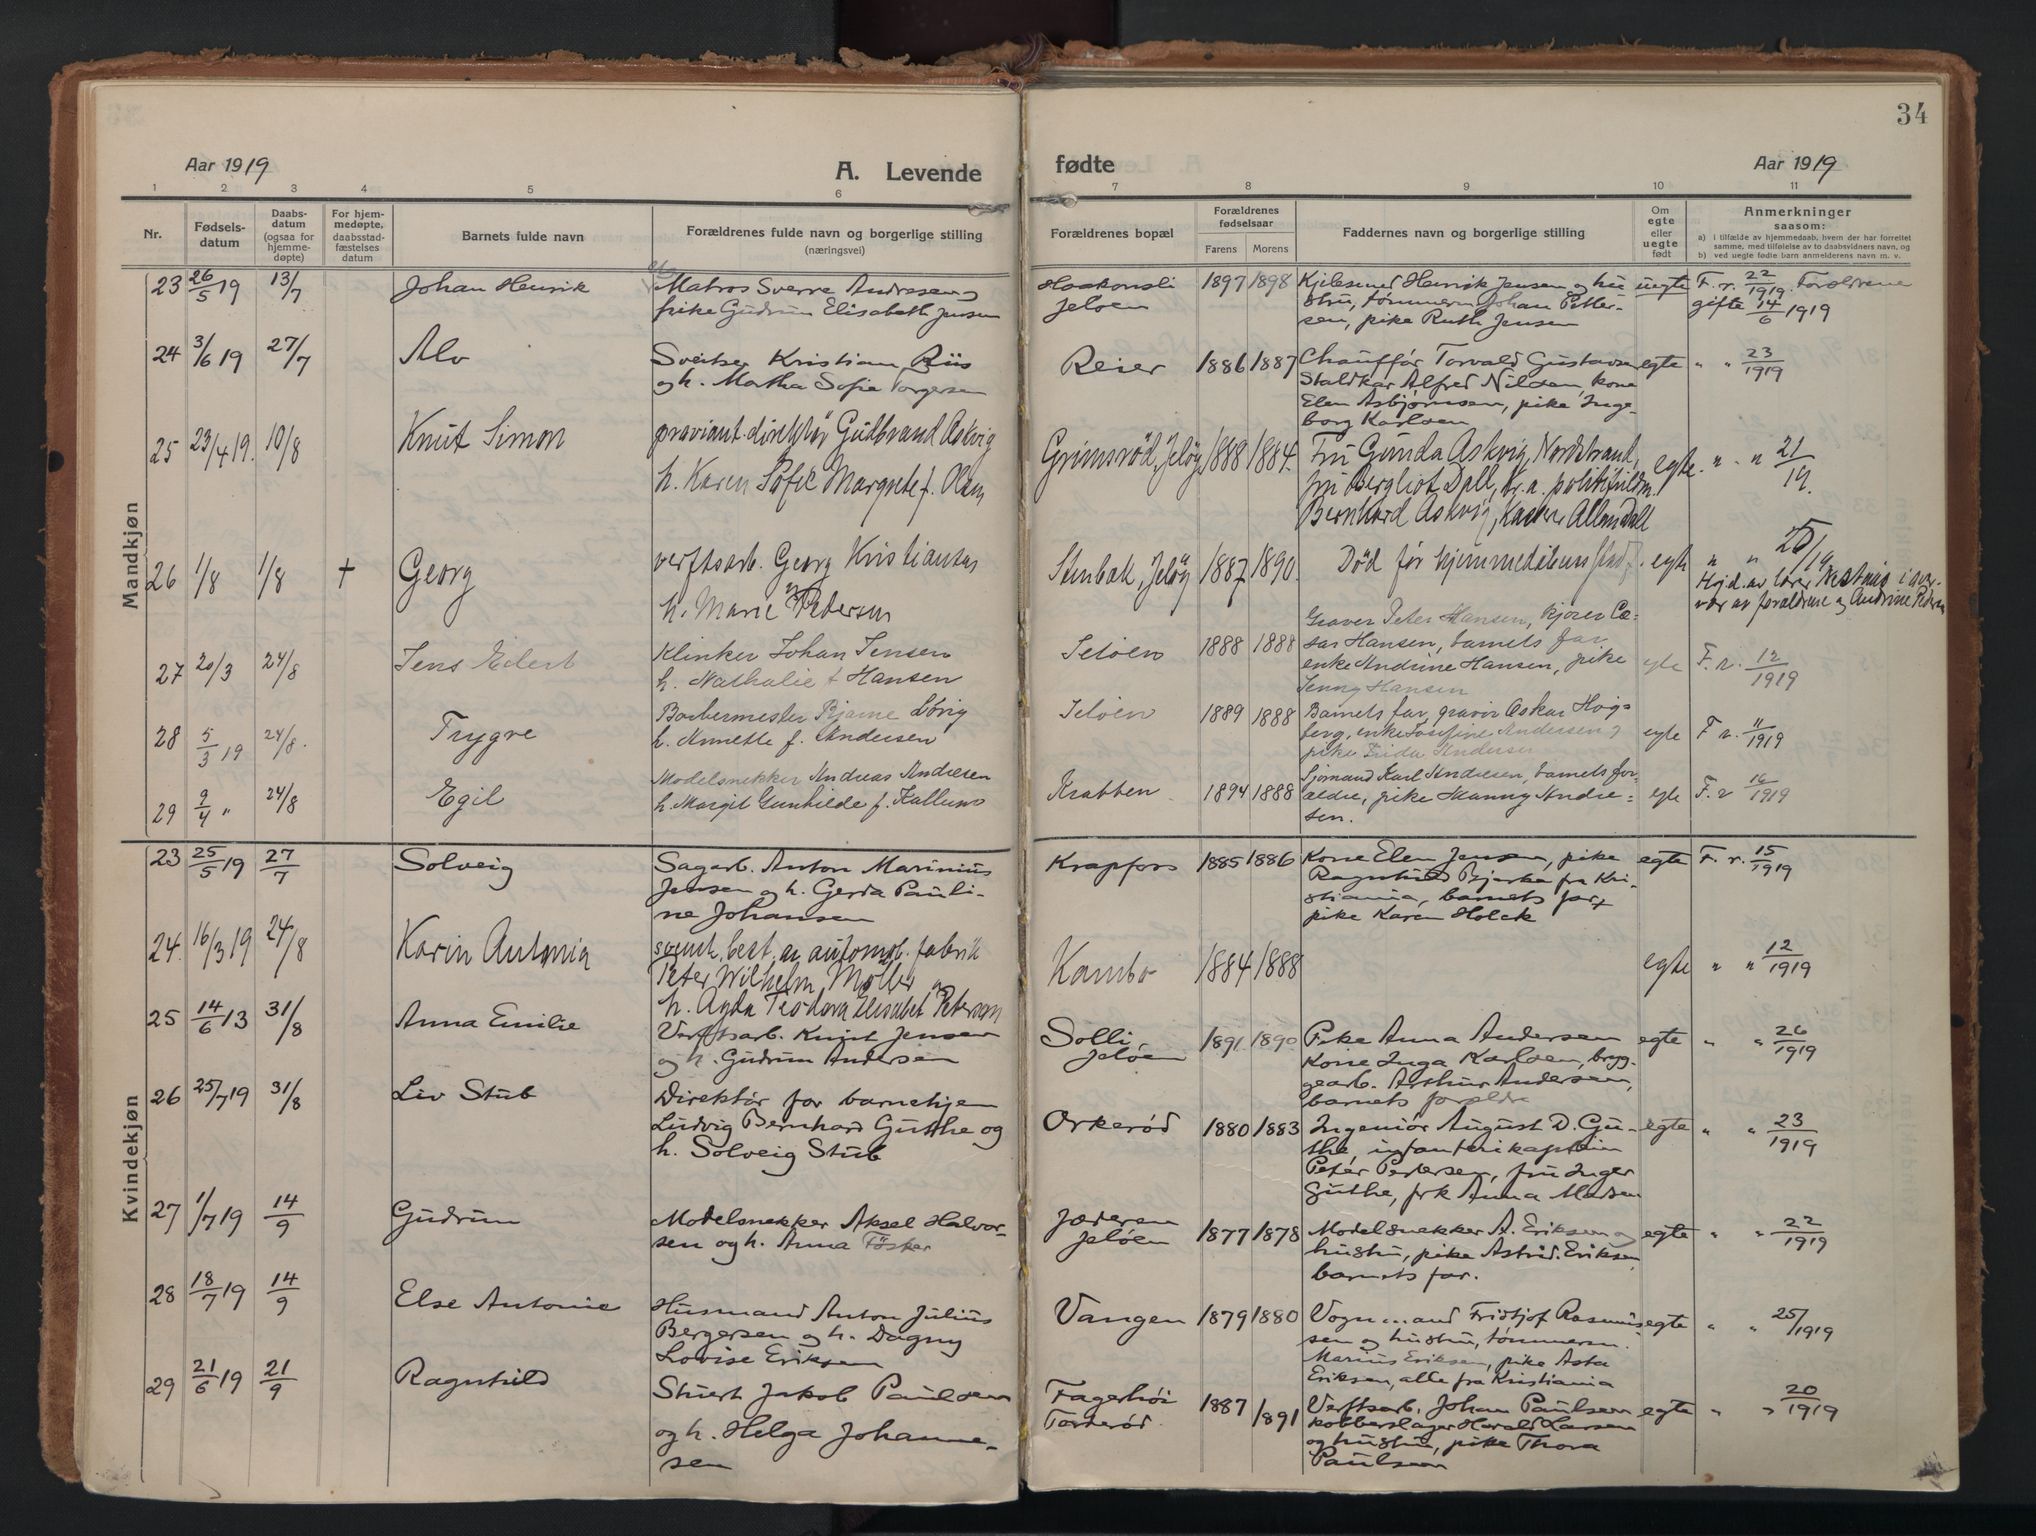 34
Aar 1919
A. Levende fødte
Aar 1919
1 2 3 4 5 6 7 8 9 10 11
Nr.
Fødsels-
datum
Daabs-
datum
(ogsaa for
hjemme-
døpte)
For hjem-
medøpte,
daabsstad-
fæstelses
datum
Barnets fulde navn
Forældrenes fulde navn og borgerlige stilling
(næringsvei)
Forældrenes bopæl
Forældrenes
fødselsaar
Farens Morens
Faddernes navn og borgerlige stilling
Om
egte
eller
uegte
født
Anmerkninger
saasom:
a) i tilfælde av hjemmedaab, hvem der har forrettet
samme, med tilføielse av to daabsvidners navn, og
b) ved uegte fødte barn anmelderens navn m. v.
Mandkjøn
23 26/5 19 13/7 Johan Henrik
Matros Sverre Andresen
pike Gudrun Elisabeth Jensen
Jeløen
1897 1898
Henrik Jensen og hu
stru, tømmerm Johan Petter-
sen, pike Ruth Jensen
uegte
F. r. 22/1919. Forældrene
gifte 14/6 1919
24 3/6 19 27/7 Alv
Sveitser Kristian Riis
og h. Martha Sofie Torgersen
Reier
1886 1887
Chauffør Torvald Gustavsen
Staldkar Alfred Nilsen, kone
Elen Asbjørnsen, pike Inge-
borg Karlsen
egte
" " 23/1919
25 23/4 19. 10/8 Knut Simon
proviant.direktør Gudbrand Askvig
h. Karen Sofie Margrete f. Olsen
Grimsrød, Jeløy
1888 1884.
Fru Gunda Askvig, Nordstrand,
fru Bergliot Dall, Kr.a. politifuldm.
Bernhard Askvig, Allan Dall
egte
" " 21/19.
26 1/8 1/8 + Georg
verftsarb. Georg Kristiansen
h. Marie Petersen
Stenbæk, Jeløy
1887 1890.
Død før hjemmedåbens stadf.
egte
" " 25/19
Hjd. av lærer i over-
vær av forældrene og Andrine Pedersen
27 20/3 24/8 Jens Edert
Klinker Johan Jensen
h. Nathalie f Hansen
Jeløen
1888 1888
Graver Peter Hansen, kjører Ca-
sar Hansen, barnets far,
enke Andrine Hansen, pike
Jenny Hansen
egte
F. r. 12/1919
28 5/3 19 24/8. Trygve
Barbermester Bjarne Løvig
h. Annette f. Andersen
Jeløen
1889 1888
Barnets far, gravør Oskar Høg-
berg, enke Josefine Andersen og
pike Frida Andersen
egte
F r. 11/1919
29 9/4 " 24/8 Egil
Modelsnekker Andreas Andresen
h. Margit Gunhilde f. Kallum
Krabben
1894 1888
Sjømand Karl Andresen, barnets for-
ældre, pike Hanny Andre-
sen.
egte
F. r 16/1919
Kvindekjøn
23 25/5 19 27/7 Solveig
Sagarb. Anton Marinius
Jensen og h. Gerda Pauli-
ne Johansen
Krapfors
1885 1886
Kone Elen Jensen, pike
Ragnhild Bjerke fra Kri-
stiania, barnets far,
pike Karen Holck
egte
F. r. 15/1919
24. 16/3 19 24/8 Karin Antonia
best. av automob. fabrik
Peter Wilhelm Møller og
h. Agda Teodora Elisabet Peterson
Kambo
1884 1888
egte
" " 12/1919
25 14/6 13 31/8 Anna Emilie
Verftsarb. Knut Jensen
og h. Gudrun Andersen
Solli,
Jeløen
1891 1890
Pike Anna Andersen
Kone Inga Karlsen, bryg-
gearb. Arthur Andersen,
barnets forældre
egte
" " 26/1919
26 25/7 19 31/8 Liv Stub
Direktør for barnehjem
Ludvig Bernhard Guthe og
h. Solveig Stub
Orkerød
1880 1883
Ingeniør August D. Gu-
the, infanterikaptein
Peter Pedersen, fru Inger
Guthe, frk Anna Madsen
egte
" " 23/1919
27 1/7 19 14/9 Gudrun
Modelsnekker Aksel Halvor-
sen og h. Anna Fösker
Jæderen
Jeløen
1877 1878
Modelsnekker A. Eriksen og
hustru, pike Astrid Eriksen,
barnets far.
egte
" " 22/1919
28 18/7 19 14/9 Else Antonie
Husmand Anton Julius
Bergersen og h. Dagny
Lovise Eriksen
Vangen
1879 1880
Vogn...and Fridtjof Rasmus-
sen og hustru, tømmerm.
Marius Eriksen, pike Asta
Eriksen, alle fra Kristiania
egte
" " 25/1919
29 21/6 19 21/9 Ragnhild
Stuert Jakob Paulsen
og h. Helga Johanne-
sen
Fagerhøi
Torderød.
1887 1891
Verftsarb. Johan Paulsen
kobberslager Harald Larsen
og hustru, pike Thora
Paulsen
egte
" " 20/1919